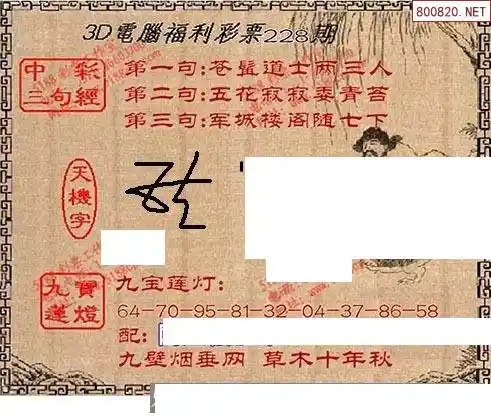 800820.NET
3D電腦福利彩票228期
中彩
三句經
第一句:苍髯道士两三人
第二句:五花寂寂委青苔
第三句:军城楼阁随七下
天機字
九寶蓮燈
九宝莲灯:
64-70-95-81-32-04-37-86-58
配:
九壁烟垂网 草木十年秋